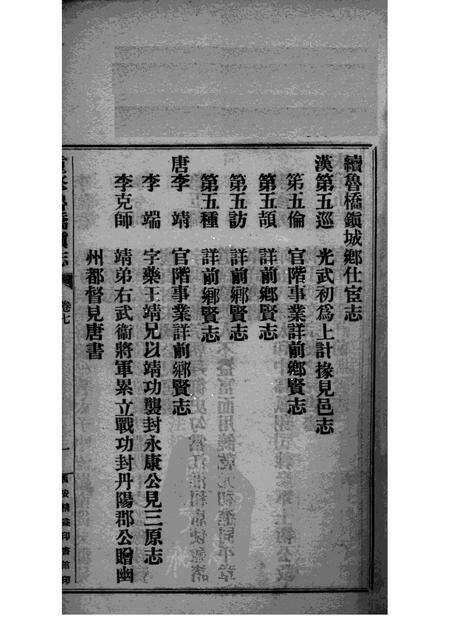 續魯橋鎮城鄉仕宦志
漢第五巡 光武初為上計掾見邑志
第五倫 官階事業詳前鄉賢志
第五頡 詳前鄉賢志
第五訪 詳前鄉賢志
第五種 詳前鄉賢志
唐李靖 官階事業詳前鄉賢志
李端 字藥王靖兄以靖功襲封永康公見三原志
李克師 靖弟右武衞將軍累立戰功封丹陽郡公贈幽
州都督見唐書
橋鎮志 卷七 一
精益印書館印